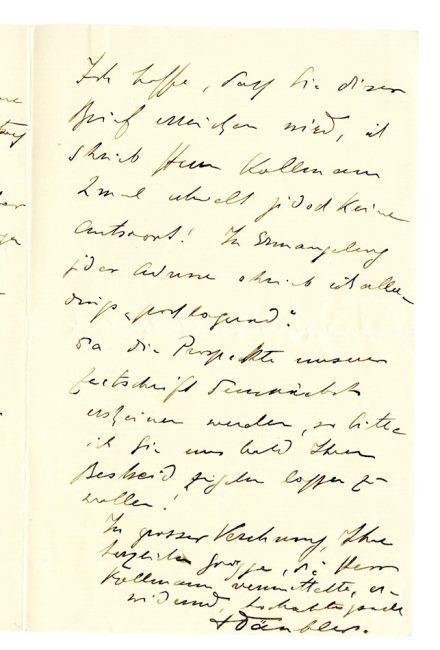 Ich hoffe, daß Sie dieser
Brief erreichen wird, ich
schrieb Herrn Kollmann
2mal erhielt jedoch keine
Antwort! In Ermangelung
jeder Adresse schrieb ich aller-
dings „postlagernd“.
Da die Prospekte unserer
Zeitschrift demnächst
erscheinen werden, so bitte
ich Sie uns bald Ihren
Bescheid zugehen lassen zu
wollen!
In grosser Verehrung, Ihre
herzlichen Grüsse, die Herr
Kollmann vermittelte, er-
widernd,
Däubler.